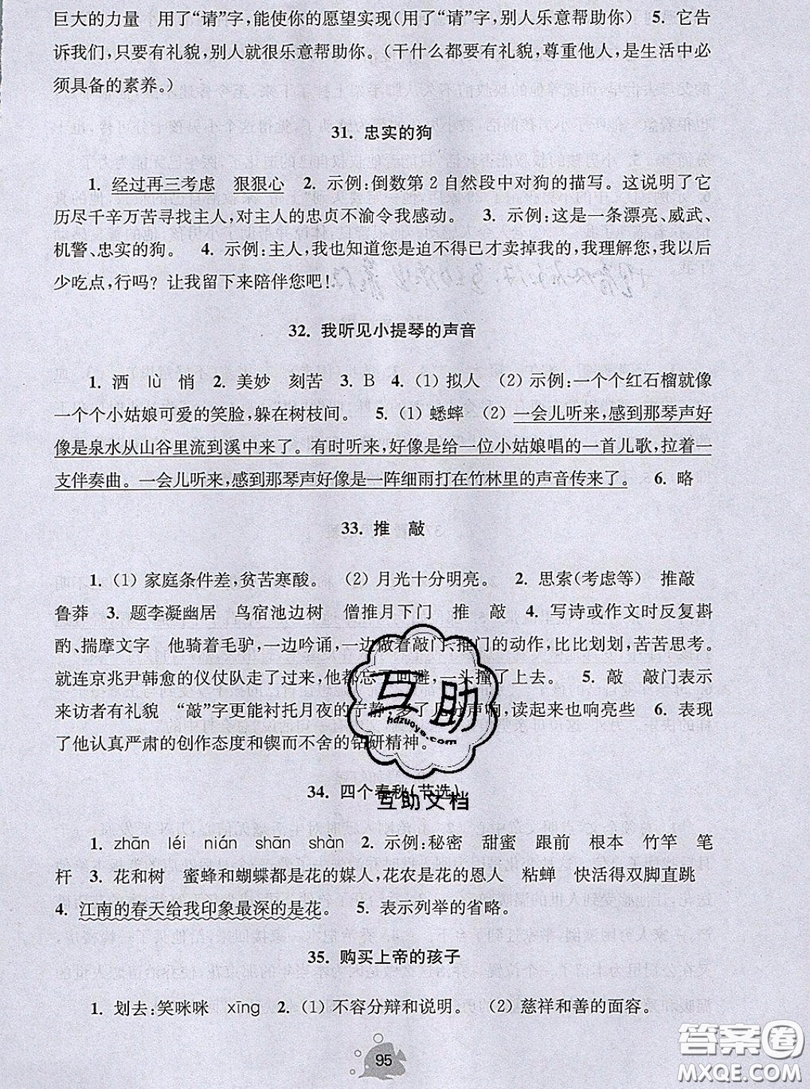 巨大的力量　用了“请”字，能使你的愿望实现(用了“请”字，别人乐意帮助你)　5. 它告
诉我们，只要有礼貌，别人就很乐意帮助你。(干什么都要有礼貌，尊重他人，是生活中必
须具备的素养。)
31. 忠实的狗
1. 经过再三考虑　狠狠心　2. 示例：倒数第 2 自然段中对狗的描写。这说明了它
历尽千辛万苦寻找主人，对主人的忠贞不渝令我感动。　3. 示例：这是一条漂亮、威武、
机警、忠实的狗。　4. 示例：主人，我也知道您是迫不得已才卖掉我的，我理解您，我以后
少吃点，行吗？让我留下来陪伴您吧！
32. 我听见小提琴的声音
1. 洒　lù　悄　2. 美妙　刻苦　3. B　4. (1) 拟人　(2) 示例：一个个红石榴就像
一个个小姑娘可爱的笑脸，躲在树枝间。　5. (1) 蟋蟀　(2) 一会儿听来，感到那琴声好
像是泉水从山谷里流到溪中来了。有时听来，好像是给一位小姑娘唱的一首儿歌，拉着一
支伴奏曲。一会儿听来，感到那琴声好像是一阵细雨打在竹林里的声音传来了。　6. 略
33. 推　敲
1. (1) 家庭条件差，贫苦寒酸。　(2) 月光十分明亮。　2. 思索(考虑等)　推敲
鲁莽　3. 题李凝幽居　鸟宿池边树　僧推月下门　推　敲　4. 写诗或作文时反复斟
酌、揣摩文字　他骑着毛驴，一边吟诵，一边做着敲门、推门的动作，比比划划，苦苦思考。
就连京兆尹韩愈的仪仗队走了过来，他都忘了回避，一头撞了上去。　5. 敲　敲门表示
来访者有礼貌　“敲”字更能衬托月夜的宁静，多了几分声响，读起来也响亮些　6. 表现
了他认真严肃的创作态度和锲而不舍的钻研精神。
互助
hdzuoye.com
34. 四个春秋(节选)
互助文档
1. zhān　léi　nián　shān　shàn　2. 示例：秘密　甜蜜　跟前　根本　竹竿　笔
杆　3. 花和树　蜜蜂和蝴蝶都是花的媒人，花农是花的恩人　粘蝉　快活得双脚直跳
4. 江南的春天给我印象最深的是花。　5. 表示列举的省略。
35. 购买上帝的孩子
1. 划去：笑咪咪　xīng　2. (1) 不容分辩和说明。　(2) 慈祥和善的面容。
95
答案圈
MXQE.COM